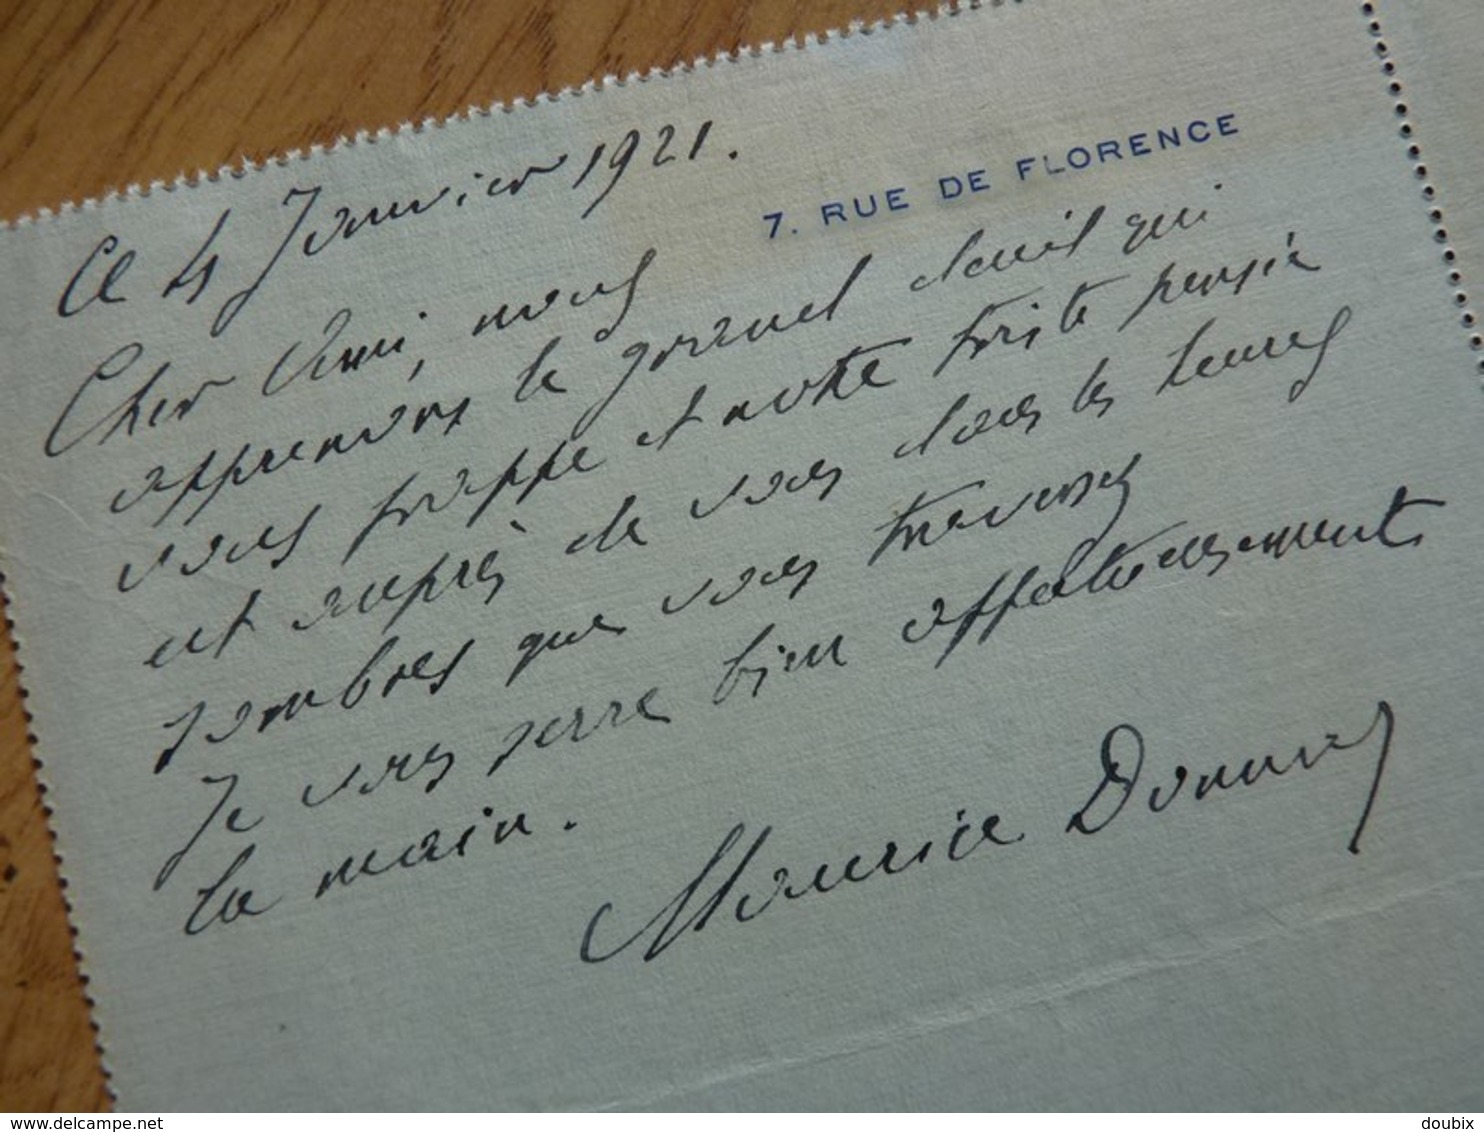 Ce 4 Janvier 1921.
7. RUE DE FLORENCE
Cher Ami, nous
apprenons le grand deuil qui
vous frappe et notre triste pensée
est auprès de vous dans les heures
sombres que vous traversez
Je vous serre bien affectueusement
la main.
Maurice Donnay
delcampe.net
doubix